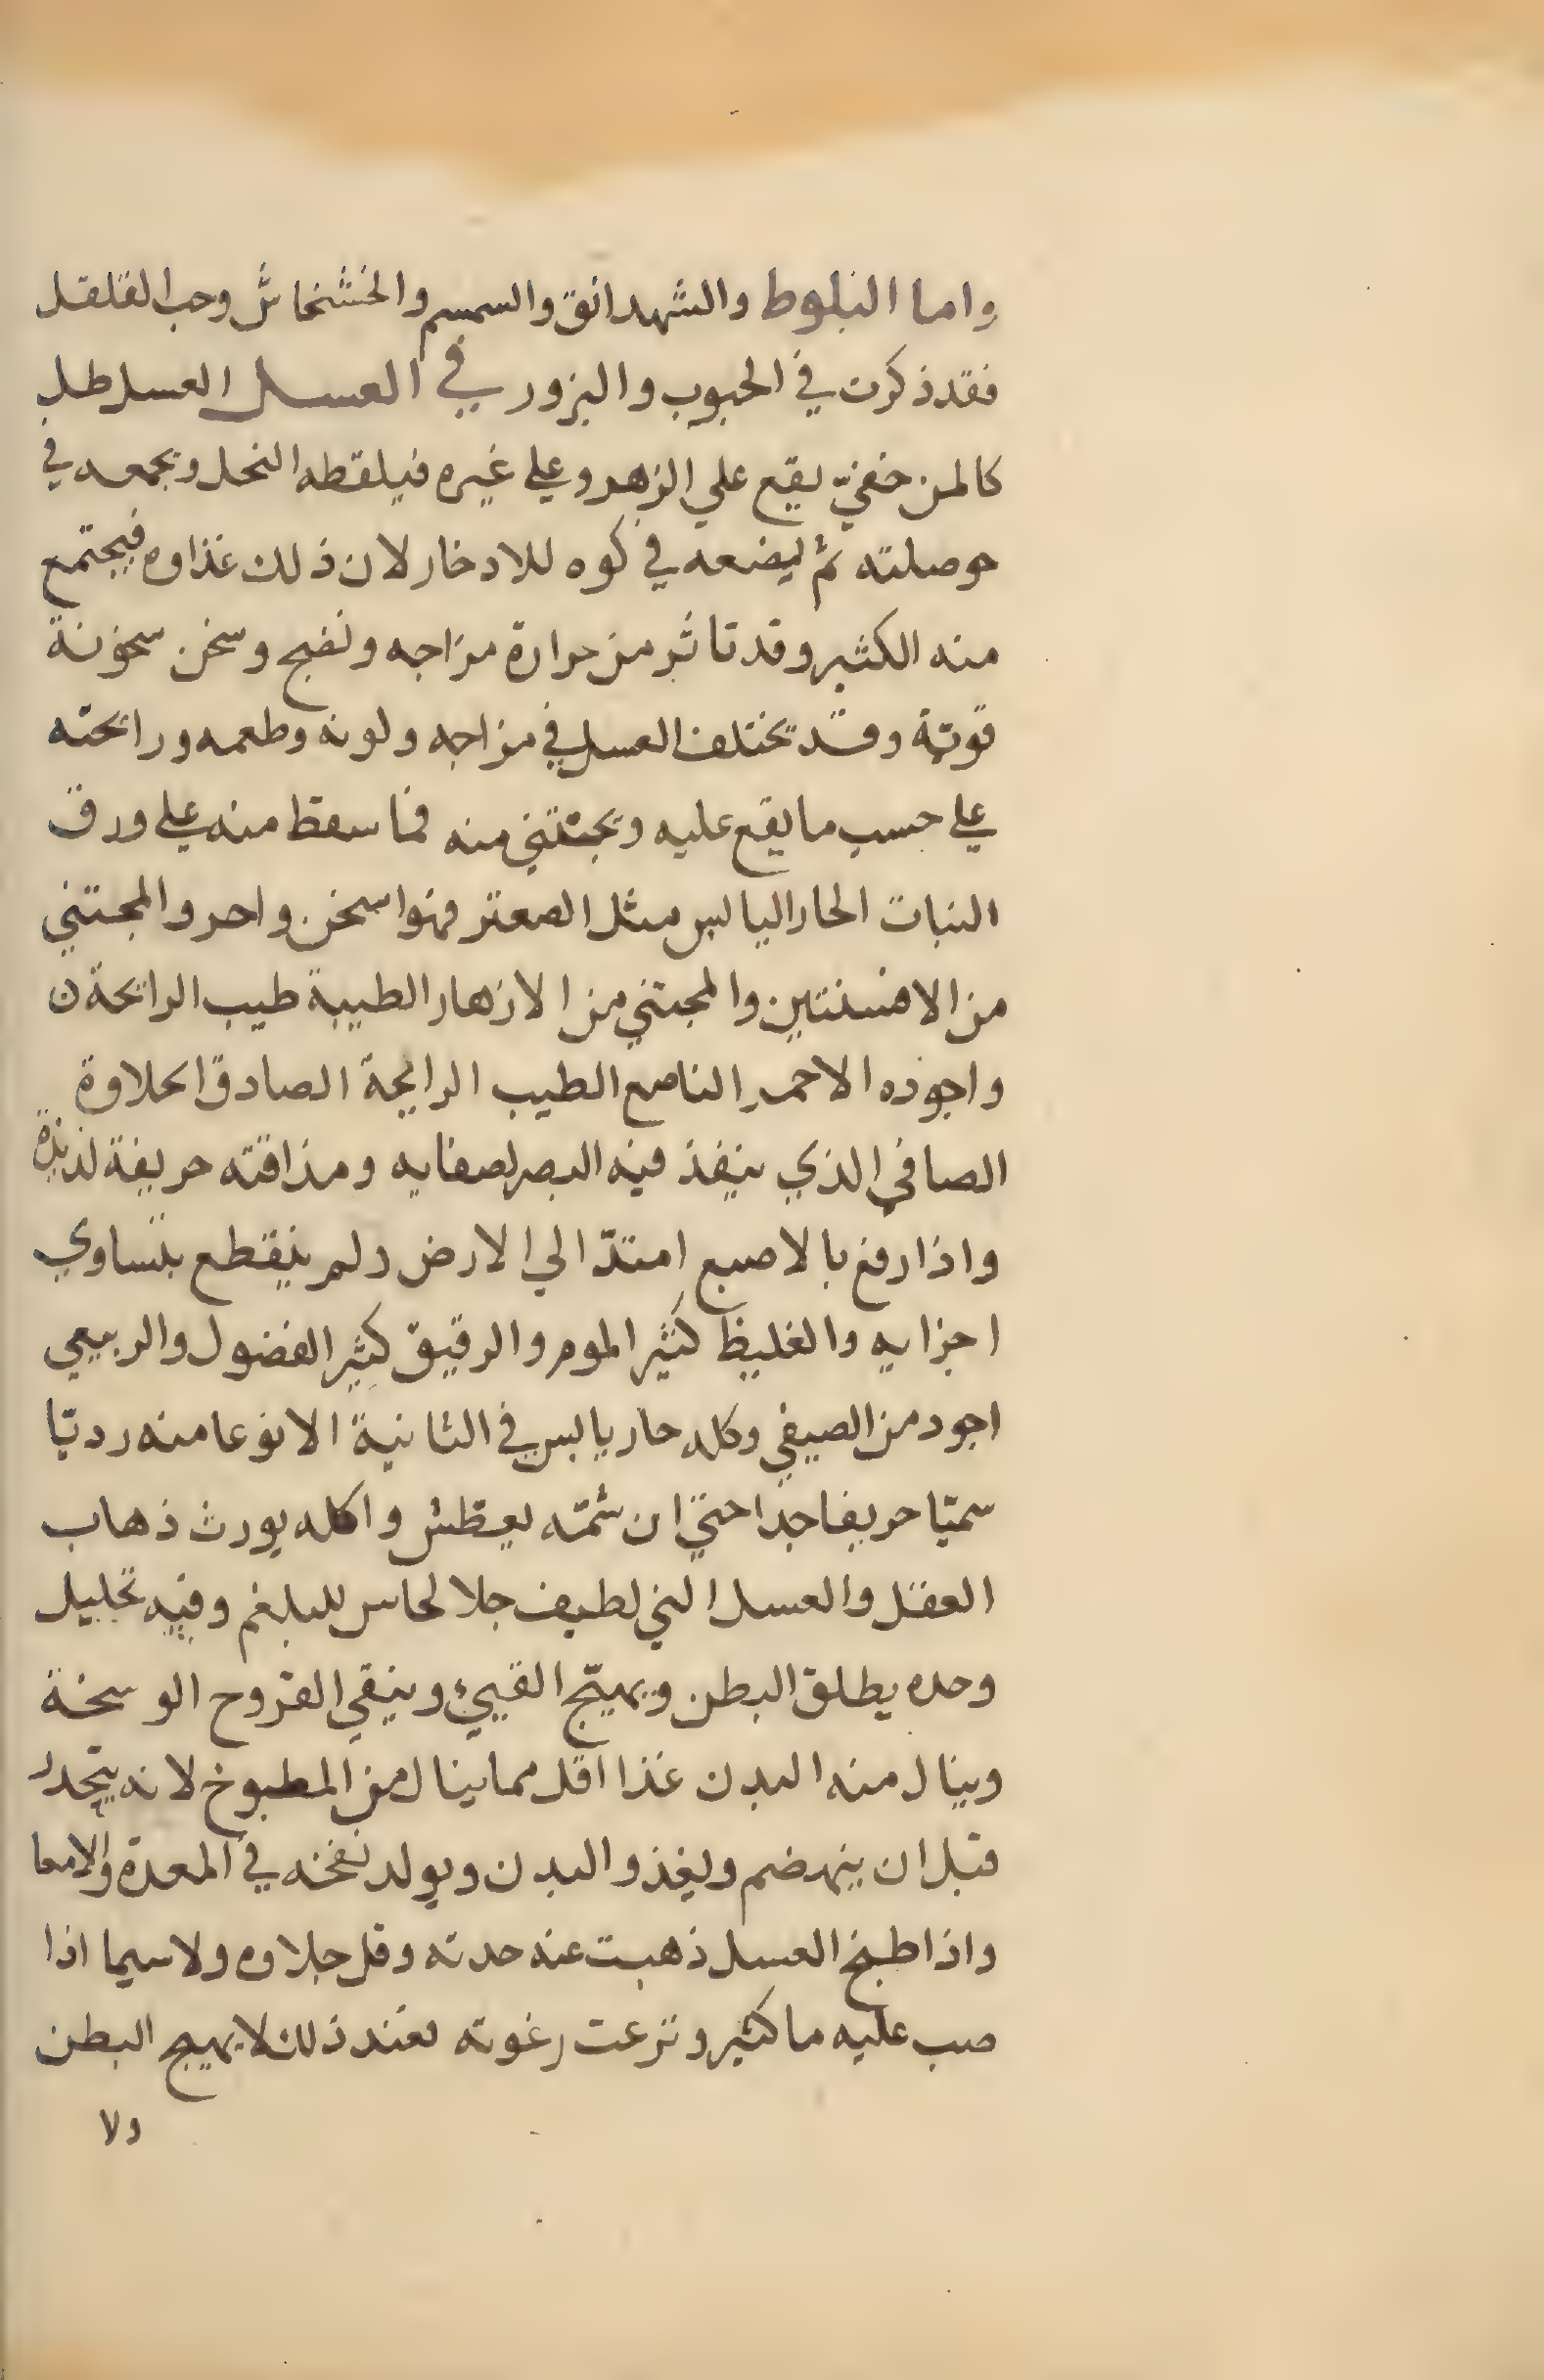 واما البلوط والشهدانق والسمسم والخشخاش وحب القلقل
فقد ذكرت في الحبوب والبزور في العسل العسل طل
كالمن خفيّ يقع علي الزهر وعلي غيره فيلقطه النحل ويجمعه في
حوصلته ثم ليضعه في كوه للادخار لان ذلك غذاوه فيجتمع
منه الكثير وقد تاثر من حرارة مزاجه ونضج وسخن سخونة
قويّة وقد يختلف العسل في مزاجه ولونه وطعمه ورائحته
علي حسب ما يقع عليه ويجتني منه فما سقط منه علي ورق
النبات الحار اليابس مثل الصعتر فهو اسخن واحر والمجتني
من الافسنتين والمجتني من الازهار الطيبة طيب الرائحة ن
واجوده الاحمر الناصع الطيب الرايحة الصادق الحلاوة
الصافي الذي ينفذ فيه البصر لصفايه ومذاقته حريفة لذيذة
واذا رفع بالاصبع امتدّ الي الارض ولم ينقطع بتساوي
اجزايه والغليظ كثير الموم والرقيق كثير الفضول والربيعي
اجود من الصيفي وكله حار يابس في الثانية الا نوعا منه رديّا
سميّا حريفا جدا حتيّ ان شمّه يعطّش واكله يورث ذهاب
العقل والعسل الني لطيف جلا لحاس للبلغم وفيه تحليل
وحده يطلق البطن ويهيّج القييء وينقي القروح الوسخة
وينال منه البدن غذا اقل مما ينال من المطبوخ لانه يتحدر
قبل ان ينهضم ويغذو البدن ويولد نفخه في المعدة والامعا
واذا طبخ العسل ذهبت عنه حدته وقل جلاوه ولاسيما اذا
صب عليه ما كثير ونزعت رغوته فعند ذلك لا يهيج البطن
ولا